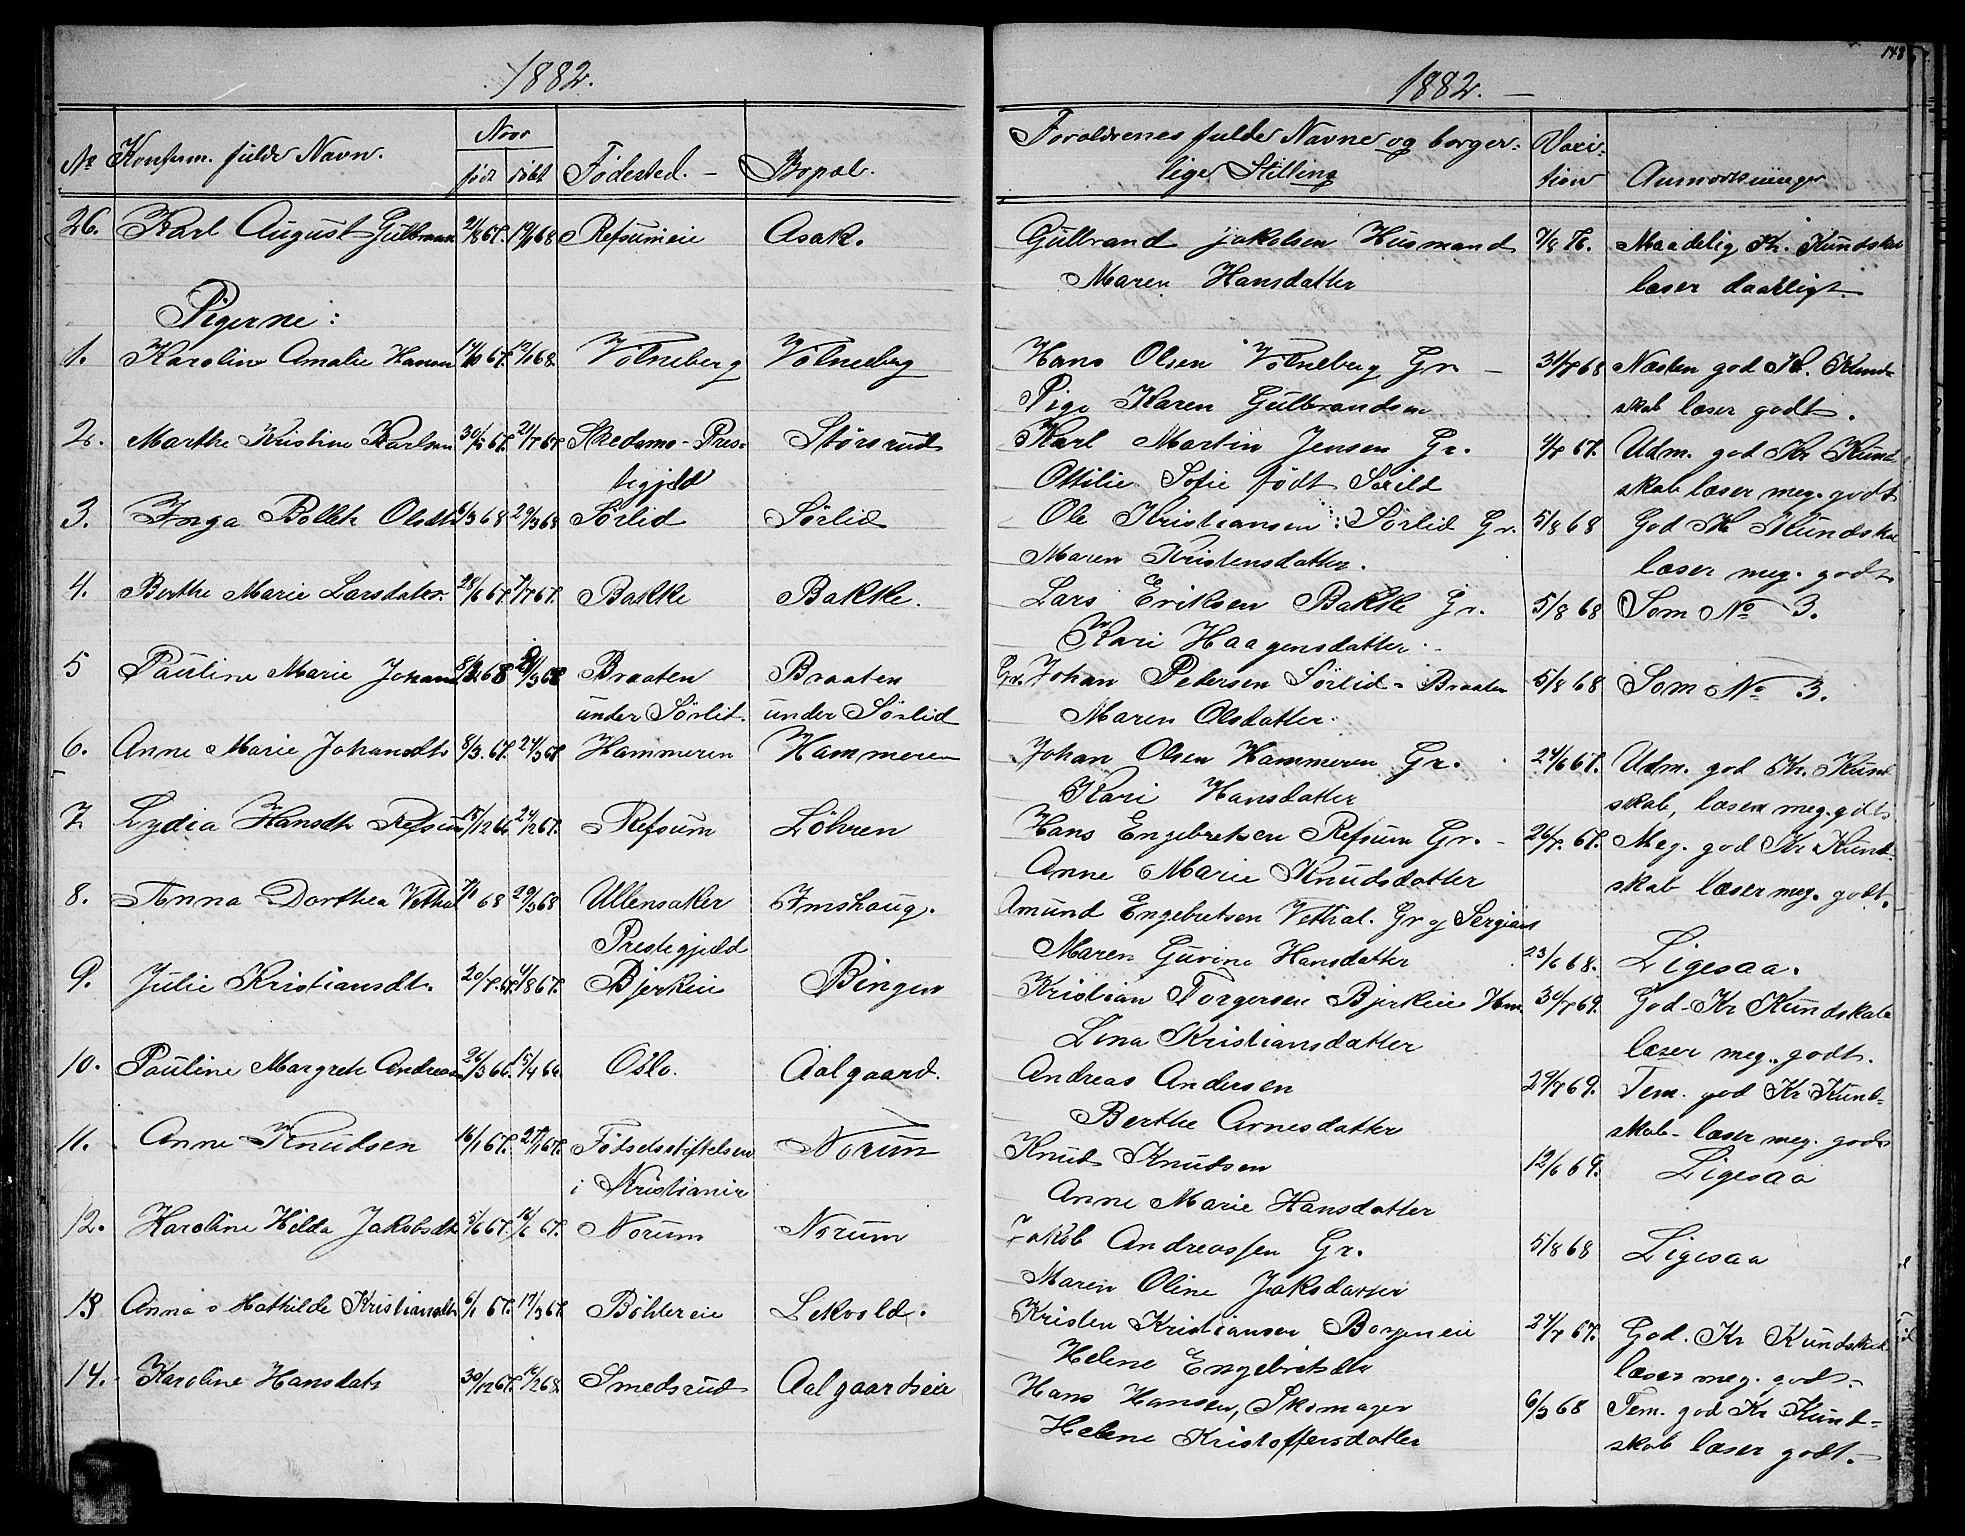 148
1882.
1882.
Nº Konferm. fulde Navn.
Naar
født
døbt
Fødested.
Bopæl.
Foraldrenes fulde Navne og borger-
lige Stilling
Vaxi-
tion
Anmærkninger
26. Karl August Gulbran 19/1 68 Refsumeie Asak.
Gulbrand Jakobsen Husmand 7/8 76. Maadelig Kr. Kundska
Maren Hansdatter læser daarligt.
Pigerne:
1. Karoline Amalie Hansen 12/1 68. Volneberg Volneberg
Hans Olsen Volneberg Gr. 31/7 68 Næsten god Kr. Kund-
Pige Karen Gulbrandsen skab læser godt.
2. Marthe Kristine Karlsen 30/5 67. 21/7 67. Skedsmo-Pres- Størsrud
tegjeld
Karl Martin Jensen Gr. Udm. god Kr Kund-
Ottilie Sofie født skab læser meg. godt
3. Inga Bollete Olsdtr 29/3 68 Sørlid Sørlid
Ole Kristiansen Sørlid Gr. 5/8 68 God Kr Kundskab
Maren Kristensdatter. læser meg. godt
4. Berthe Marie Larsdater. 28/6 67. Bakke Bakke.
Lars Eriksen Bakke Gr. 5/8 68 Som Nº 3.
Kari Haagensdatter.
5 Pauline Marie Johans Braaten Braaten
under Sørlid. under Sørlid
Gr. Johan Pedersen Sørlid-Braaten 5/8 68 Som Nº 3.
Maren Olsdatter.
6. Anne Marie Johansdtr 8/3. 67. 24/3 67. Hammeren Hammeren
Johan Olsen Hammeren Gr. 24/6 67. Udm. god Kr. Kund
Kari Hansdatter skab, læser meg. godt
7. Lydia Hansdtr Refsum 15/12 66 Refsum Løhren
Hans Engebretsen Refsum Gr. 26/7. 67. Meg. god Kr Kund-
Anne Marie Knudsdatter skab læser meg. godt.
8. Anna Dorthea Vethal 7/1 68 29/3 68 Ullensaker Imshaug.
Prestegjeld
Amund Engebretsen Vethal. Gr og Sergiant
Maren Guvine Hansdatter 23/6 68. Ligesaa.
9. Julie Kristiansdt. 20/7. 67. 4/8 67. Bjerkeie Bingen
Kristian Torgersen Bjerkeie Hm. 30/7 69. God Kr Kundskab
Lina Kristiansdatter læser meg. godt.
10. Pauline Margrete Andreas 26/3 66. 15/4 66. Oslo. Aalgaard.
Andreas Andersen 29/7 69. Tem. god Kr Kund-
Berthe Arnesdatter skab- læser meg. godt
11. Anne Knudsen 16/1 67. 27/1 67. Fødselsstiftelsen Norum
i Kristiania
Knud Knudsen 12/6 69. Ligesaa
Anne Marie Hansdatter
12. Karoline Hilda Jakobsdtr 5/6 67. 16/6 67. Norum Norum
Jakob Andreassen Gr. 5/8 68 Ligesaa
Maren Oline
13 Anna Mathilde Kristiansdtr 6/1 67. 17/3 67. Böhlereie Lekvold.
Kristen Kristiansen Borgeneie 24/7 67. God. Kr Kundskab
Helene Engebretsdtr læser meg. godt.
14. Karoline Hansdatr 30/12 67. 16/2 68. Smedsrud Aalgaardseie
Hans Hansen, Skomager 6/3 68 Tem. god Kr Kund-
Helene Kristoffersdatter skab læser godt.